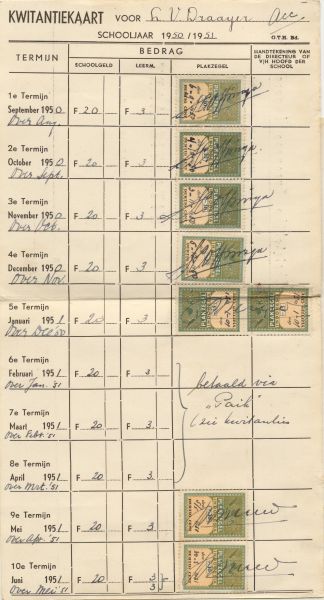 KWITANTIEKAART VOOR L. V. Draayer Acc.
SCHOOLJAAR 1950/1951
O.T.H. Bd.
TERMIJN BEDRAG HANDTEKENING VAN DE DIRECTEUR OF V/H HOOFD DER SCHOOL
SCHOOLGELD LEERM. PLAKZEGEL
1e Termijn
September 1950 F 20 F 3
over Aug.
2e Termijn
October 1950 F 20 F 3
over Sept.
3e Termijn
November 1950 F 20 F 3
over Oct.
4e Termijn
December 1950 F 20 F 3
over Nov.
5e Termijn
Januari 1951 F 20 F 3
over Dec 50
6e Termijn
Februari 1951 F 20 F 3
over Jan. '51
betaald via
7e Termijn
Maart 1951 F 20 F 3.
over Febr. '51
zie kwitanties
8e Termijn
April 1951 F 20 F 3.
over Mrt. '51
9e Termijn
Mei 1951 F 20 F 3.
over Apr. '51
10e Termijn
Juni 1951 F 20 F 3
3
over Mei '51